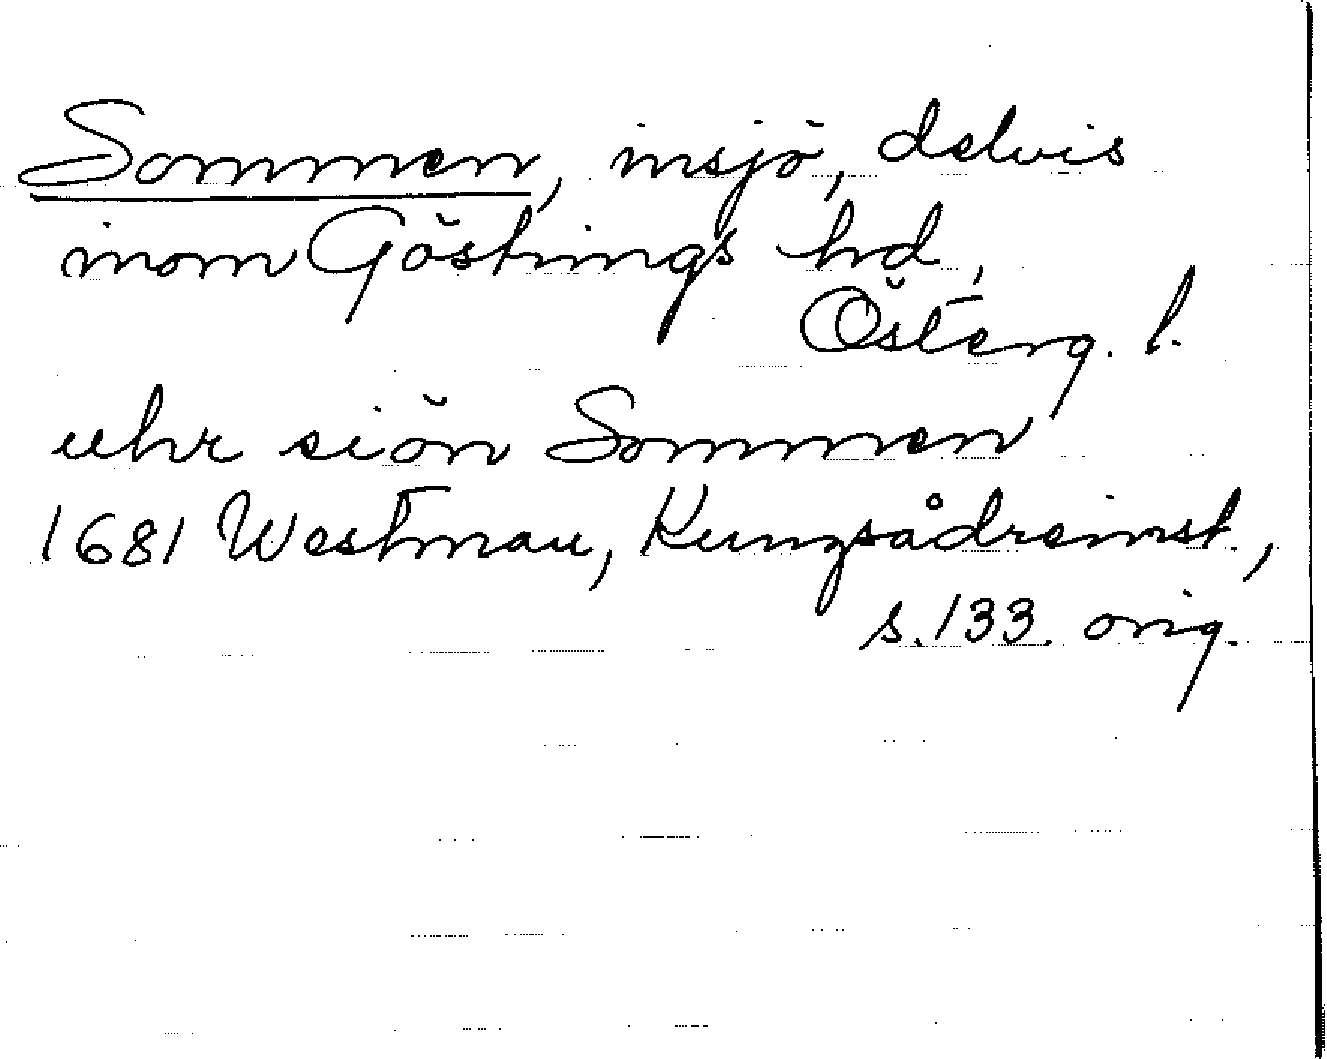 Sommen, insjö, delvis
inom Göstrings hd,
Österg. l.
uhr siön Sommen
1681 Westmau, Kungsådreinst.,
s. 133. orig.